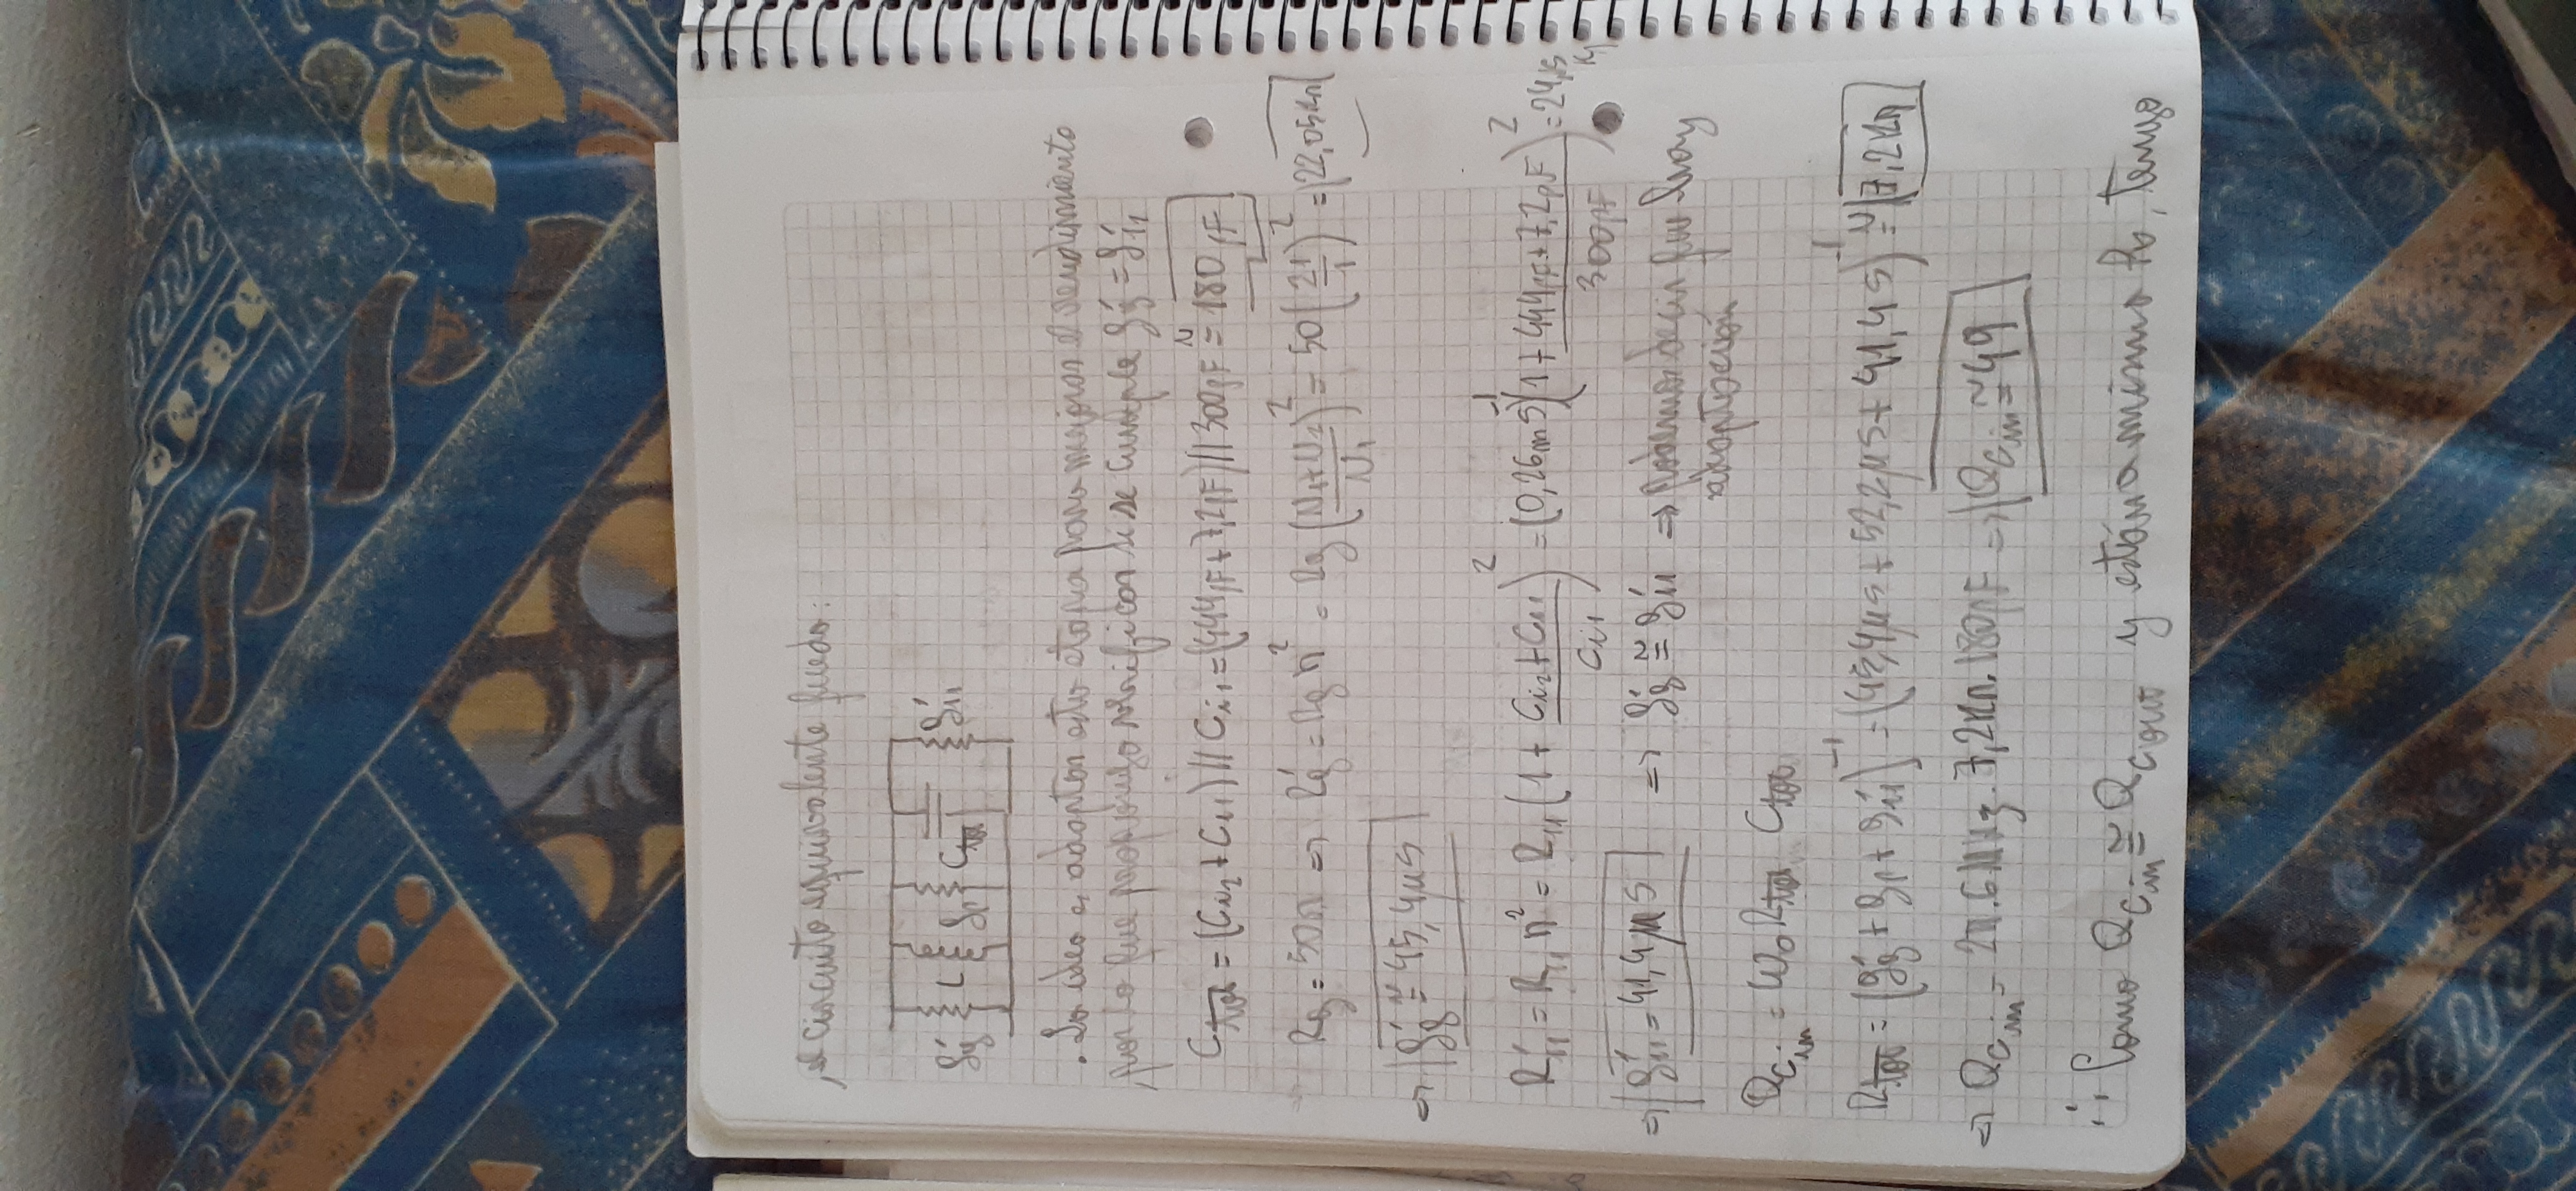 el circuito equivalente queda:
gg' L gp Ctot g11'
. La idea es adaptar esta etapa para mejorar el rendimiento
por lo que propongo verificar si se cumple gg' = g11'
Ctot = (Ci2 + C11) // Ci1 = (444pF + 7,2pF) // 300pF ≅ 180pF
Rg = 50Ω => Rg' = Rg n² = Rg ((N1+N2)/N1)² = 50 (21/1)² = 22,05KΩ
=> gg' ≅ 45,4μS
R11' = R11 n² = R11 (1 + (Ci2 + C11)/Ci1)² = (0,26mS)⁻¹ (1 + (444pF + 7,2pF)/300pF)² =
=> g11' = 41,4μS => gg' ≅ g11' => podemos decir que hay
adaptación
Qcin = ω0 Rtot Ctot
Rtot = (gg' + gp + g11')⁻¹ = (45,4μS + 52,2μS + 41,4S)⁻¹ ≅ 7,2KΩ
=> Qcin = 2π.6MHz.7,2KΩ.180pF => Qcin ≅ 49
∴ Como Qcin ≅ Qcout y están a misma f0, tengo